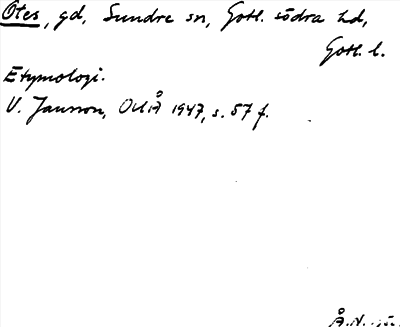 Otes, gd, Sundre sn, Gotl. södra hd,
Gotl. l.
Etymologi.
V. Jansson, OUÅ 1947, s. 57 f.